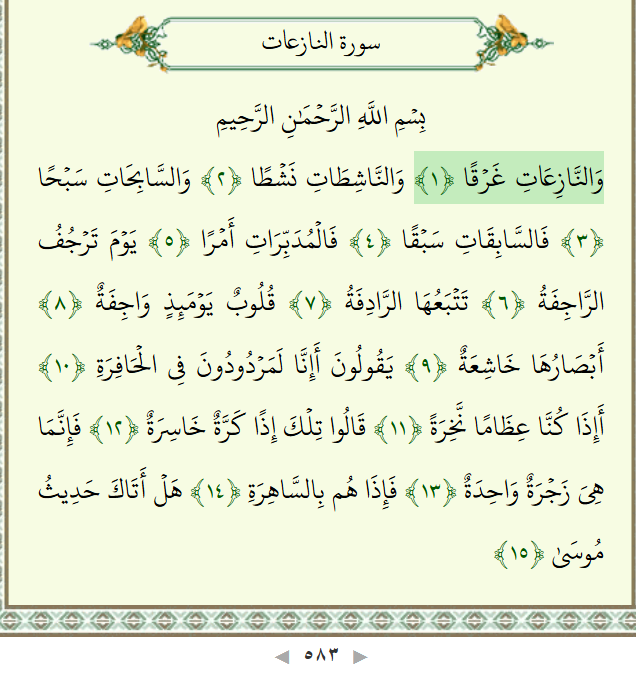 سورة النازعات
بِسْمِ اللَّهِ الرَّحْمَٰنِ الرَّحِيمِ
وَالنَّازِعَاتِ غَرْقًا ﴿١﴾ وَالنَّاشِطَاتِ نَشْطًا ﴿٢﴾ وَالسَّابِحَاتِ سَبْحًا
﴿٣﴾ فَالسَّابِقَاتِ سَبْقًا ﴿٤﴾ فَالْمُدَبِّرَاتِ أَمْرًا ﴿٥﴾ يَوْمَ تَرْجُفُ
الرَّاجِفَةُ ﴿٦﴾ تَتْبَعُهَا الرَّادِفَةُ ﴿٧﴾ قُلُوبٌ يَوْمَئِذٍ وَاجِفَةٌ ﴿٨﴾
أَبْصَارُهَا خَاشِعَةٌ ﴿٩﴾ يَقُولُونَ أَإِنَّا لَمَرْدُودُونَ فِي الْحَافِرَةِ ﴿١٠﴾
أَإِذَا كُنَّا عِظَامًا نَّخِرَةً ﴿١١﴾ قَالُوا تِلْكَ إِذًا كَرَّةٌ خَاسِرَةٌ ﴿١٢﴾ فَإِنَّمَا
هِيَ زَجْرَةٌ وَاحِدَةٌ ﴿١٣﴾ فَإِذَا هُم بِالسَّاهِرَةِ ﴿١٤﴾ هَلْ أَتَاكَ حَدِيثُ
مُوسَىٰ ﴿١٥﴾
٥٨٣